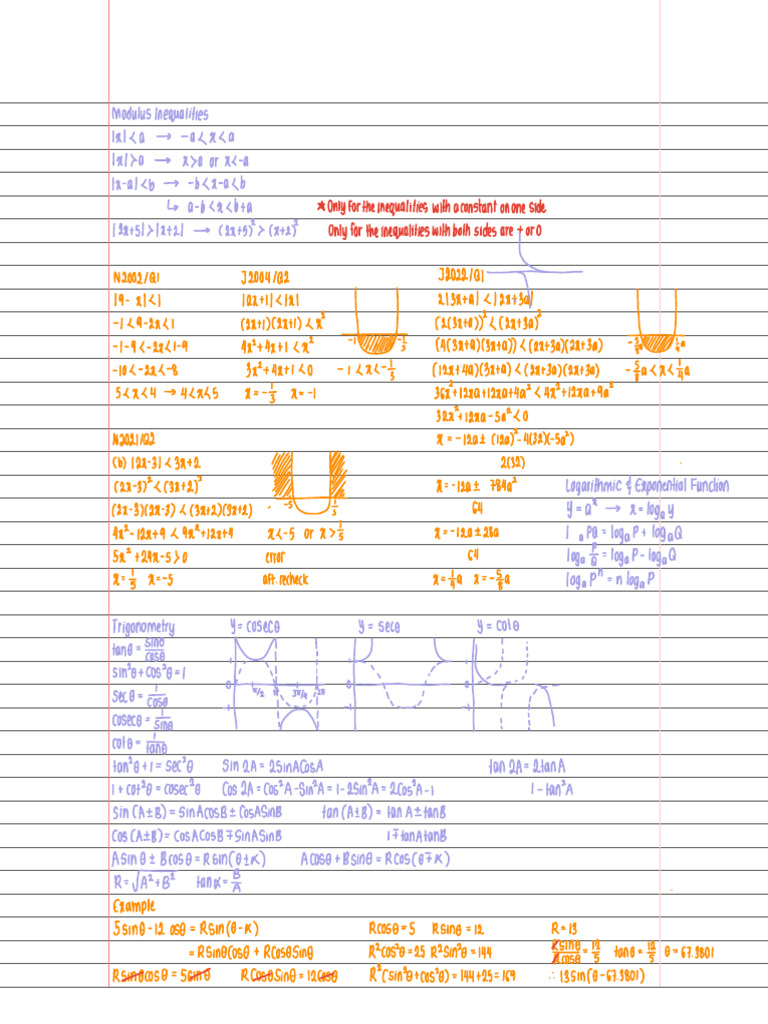 Modulus Inequalities
|x| < a → -a < x < a
|x| > a → x > a or x < -a
|x-a| < b → -b < x-a < b
↳ a-b < x < b+a
★ Only for the inequalities with a constant on one side
|2x+5| > |x+2| → (2x+5)² > (x+2)²
Only for the inequalities with both sides are + or 0
N2002/Q1
|9- x| < 1
-1 < 9-2x < 1
-1-9 < -2x < 1-9
-10 < -2x < -8
5 < x < 4 → 4 < x < 5
J2004/Q2
|2x+1| < |x|
(2x+1)(2x+1) < x²
4x²+4x+1 < x²
3x²+4x+1 < 0
x = -1/3 x = -1
-1 -1/3
-1 < x < -1/3
J2022/Q1
2|3x+a| < |2x+3a|
(2(3x+a))² < (2x+3a)²
(4(3x+a)(3x+a)) < (2x+3a)(2x+3a)
(12x+4a)(3x+a) < (2x+3a)(2x+3a)
36x²+12xa+12xa+4a² < 4x²+12xa+9a²
32x²+12xa-5a² < 0
x = -12a ± (12a)²-4(32)(-5a²)
2(32)
x = -12a ± 784a²
64
x = -12a ± 28a
64
x = 1/4a x = -5/8a
-5/8a 1/4a
-5/8a < x < 1/4a
N2021/Q2
(b) |2x-3| < 3x+2
(2x-3)² < (3x+2)²
(2x-3)(2x-3) < (3x+2)(3x+2)
4x²-12x+9 < 9x²+12x+4
5x²+24x-5 > 0
x = 1/5 x = -5
-5 1/5
x < -5 or x > 1/5
error
aft. recheck
Logarithmic & Exponential Function
y = aˣ → x = logₐy
l ₐPQ = logₐP + logₐQ
logₐ P/Q = logₐP - logₐQ
logₐPⁿ = n logₐP
Trigonometry
tanθ = sinθ/cosθ
sin²θ + cos²θ = 1
secθ = 1/cosθ
cosecθ = 1/sinθ
cotθ = 1/tanθ
y = cosecθ
1
0 π/2 π 2π
-1
y = secθ
1
0
-1
y = cotθ
1
0
-1
tan²θ + 1 = sec²θ sin 2A = 2sinAcosA tan 2A = 2tanA
1 + cot²θ = cosec²θ Cos 2A = Cos²A - Sin²A = 1 - 2Sin²A = 2Cos²A - 1 1 - tan²A
sin (A±B) = sinAcosB ± CosASinB tan (A±B) = tan A ± tanB
Cos (A±B) = CosACosB ∓ SinASinB 1 ∓ tanAtanB
Asinθ ± Bcosθ = Rsin(θ±α) Acosθ + Bsinθ = Rcos(θ∓α)
R = √A²+B² tanα = B/A
Example
5sinθ - 12 osθ = Rsin(θ-α) Rcosθ = 5 Rsinθ = 12 R = 13
= RsinθCosθ + RcosθSinθ R²cos²θ = 25 R²Sin²θ = 144 Rsinθ/Rcosθ = 12/5 tanθ = 12/5 θ = 67.3801
Rsinθcosθ = 5sinθ RCosθSinθ = 12cosθ R²(sin²θ+cos²θ) = 144+25 = 169 ∴ 13sin(θ-67.3801)